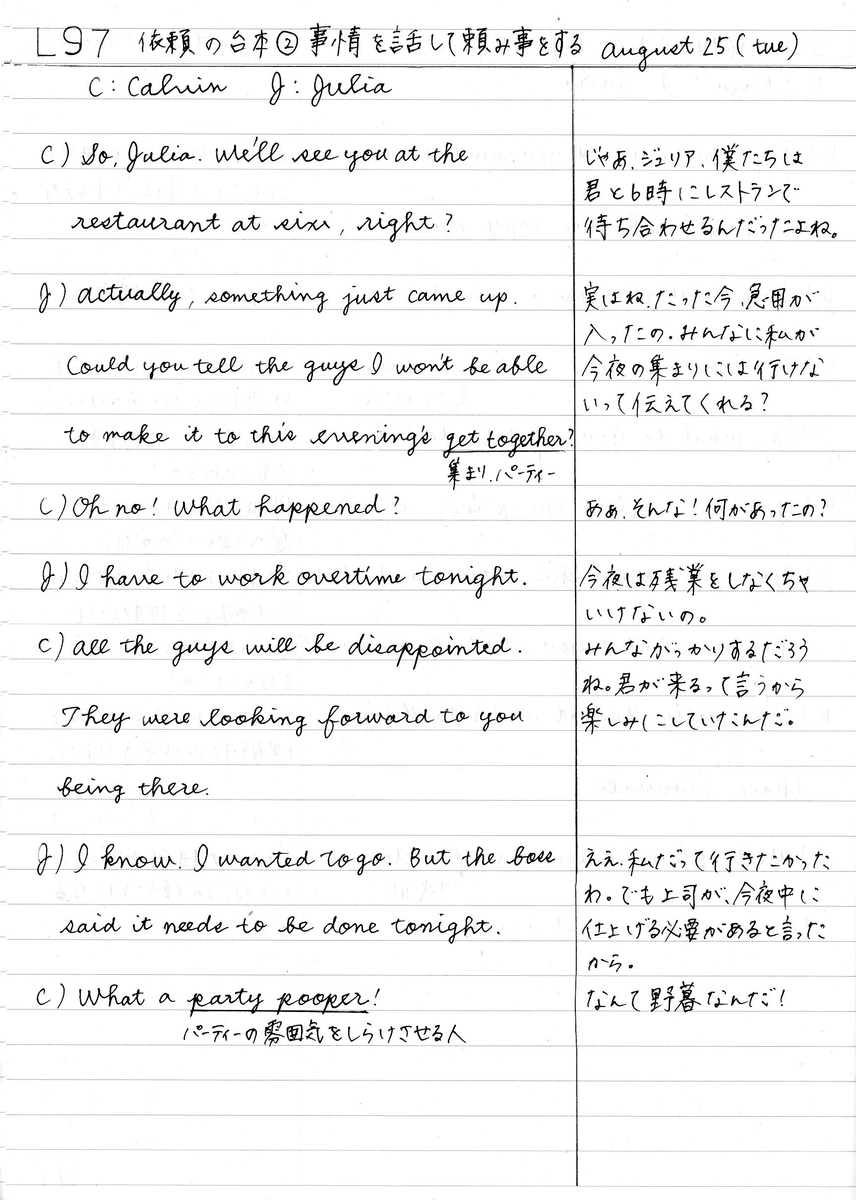 L97 依頼の台本② 事情を話して頼み事をする august 25 (tue)
C: Calvin J: Julia
C) So, Julia. We'll see you at the
restaurant at six, right?
じゃあ、ジュリア、僕たちは
君と6時にレストランで
待ち合わせるんだったよね。
J) actually, something just came up.
Could you tell the guys I won't be able
to make it to this evening's get together?
集まり、パーティー
実はね、たった今、急用が
入ったの。みんなに私が
今夜の集まりには行けな
いって伝えてくれる?
C) Oh no! What happened?
あぁ、そんな!何があったの?
J) I have to work overtime tonight.
今夜は残業をしなくちゃ
いけないの。
C) all the guys will be disappointed.
They were looking forward to you
being there.
みんながっかりするだろう
ね。君が来るって言うから
楽しみにしていたんだ。
J) I know. I wanted to go. But the boss
said it needs to be done tonight.
ええ、私だって行きたかった
わ。でも上司が、今夜中に
仕上げる必要があると言った
から。
C) What a party pooper!
パーティーの雰囲気をしらけさせる人
なんて野暮なんだ!